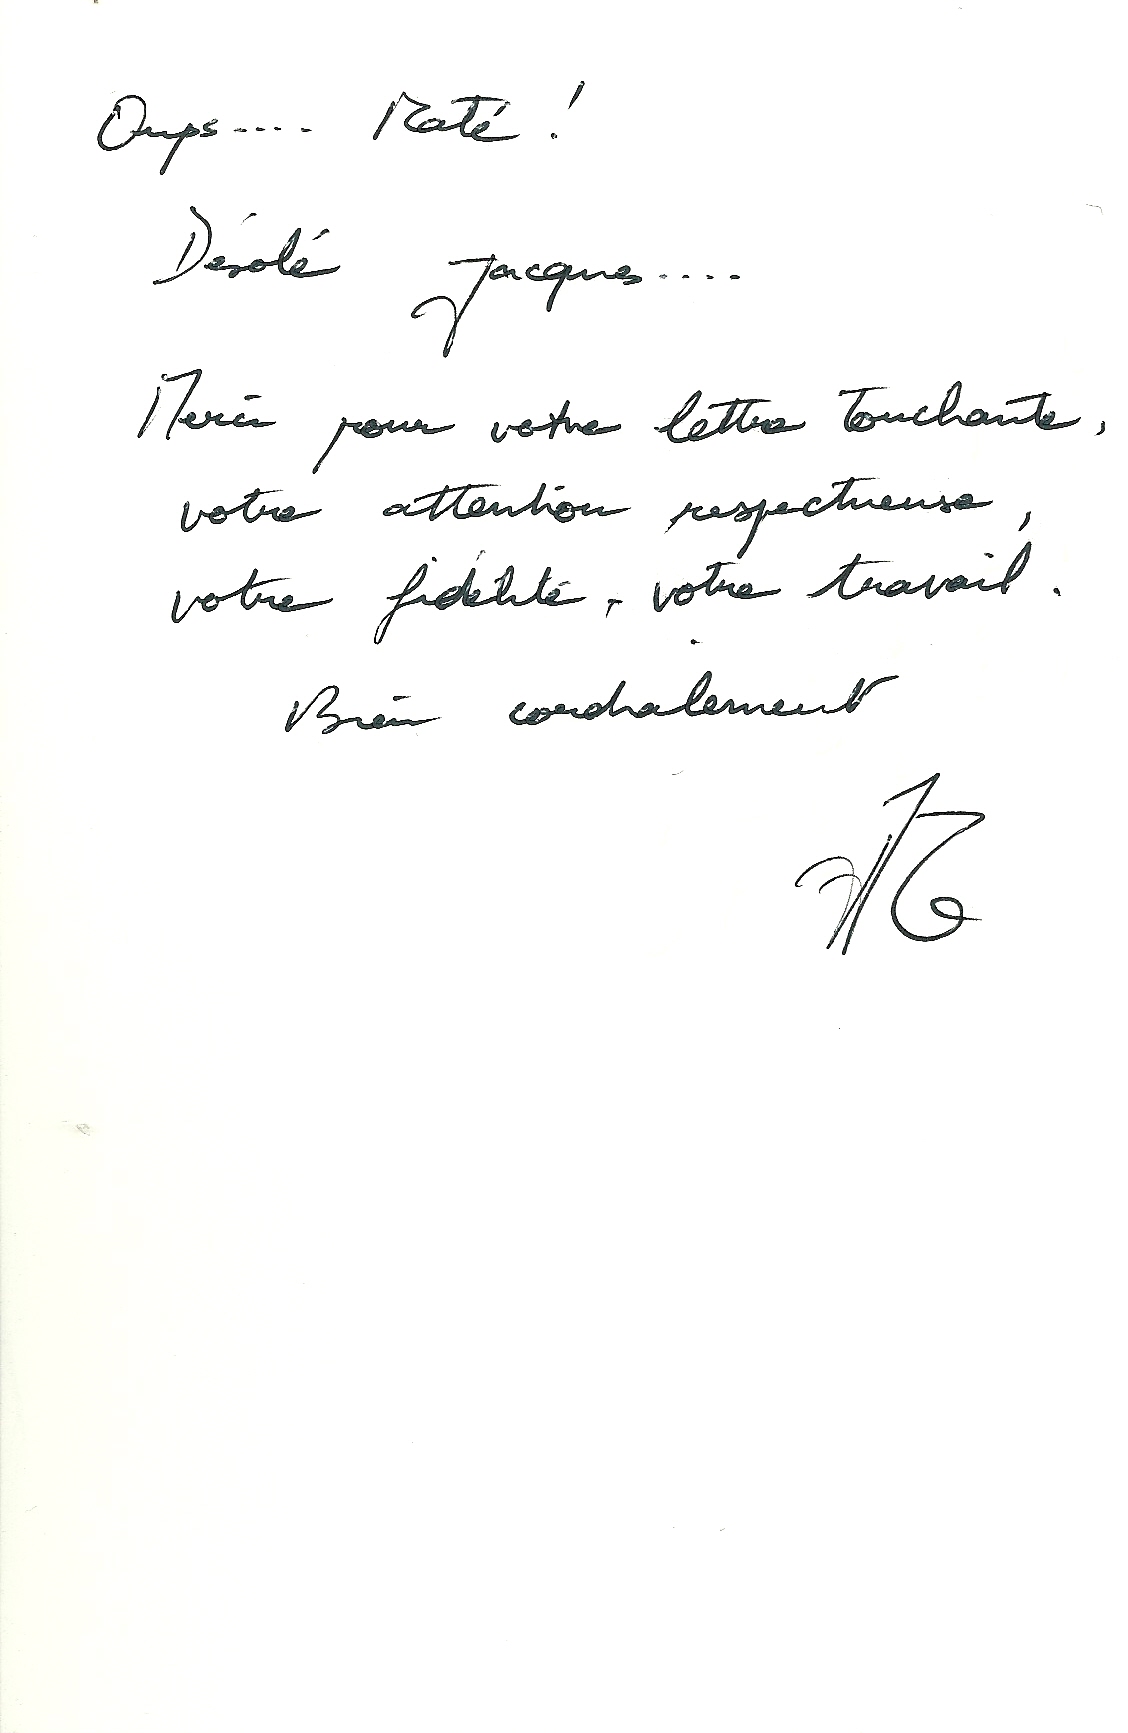 Oups.... Raté !
Désolé Jacques....
Merci pour votre lettre touchante,
votre attention respectueuse,
votre fidélité, votre travail.
Bien cordialement